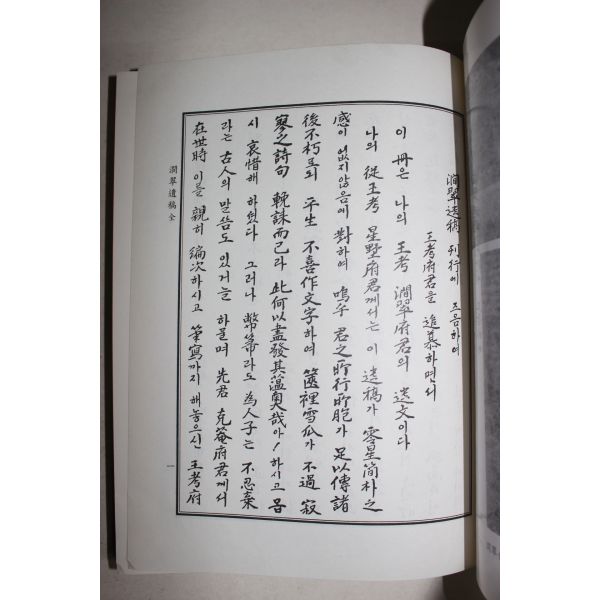 澗翠遺稿 刊行에 즈음하여
王考府君을 追慕하면서
이 冊은 나의 王考 澗翠府君의 遺文이다
나의 從王考 星墅府君께서는 이 遺稿가 零星簡朴之
感이 없지않음에 對하여 嗚乎 君之所行所胞가 足以傳諸
後不朽로되 平生 不喜作文字하여 篋裡雪瓜가 不過 寂
寥之詩句 輓誄而已라 此何以盡發其蘊奧哉아! 하시고 몹
시 哀惜해 하였다 그러나 幣箒라도 為人子는 不忍棄
라는 古人의 말씀도 있거늘 하물며 先君 克菴府君께서
在世時 이를 親히 編次하시고 筆寫까지 해놓으신 王考府
澗翠遺稿 全
一